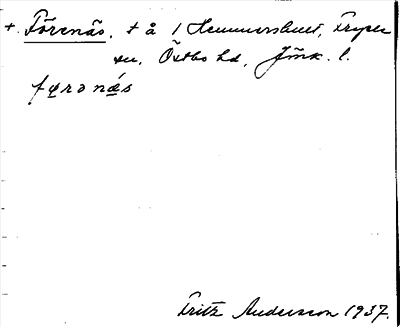 +. Förenäs. + å 1 Hemmansbuet, Fryele
sn, Östbo hd, Jönk. l.
førənǽs
Fritz Andersson 1937.